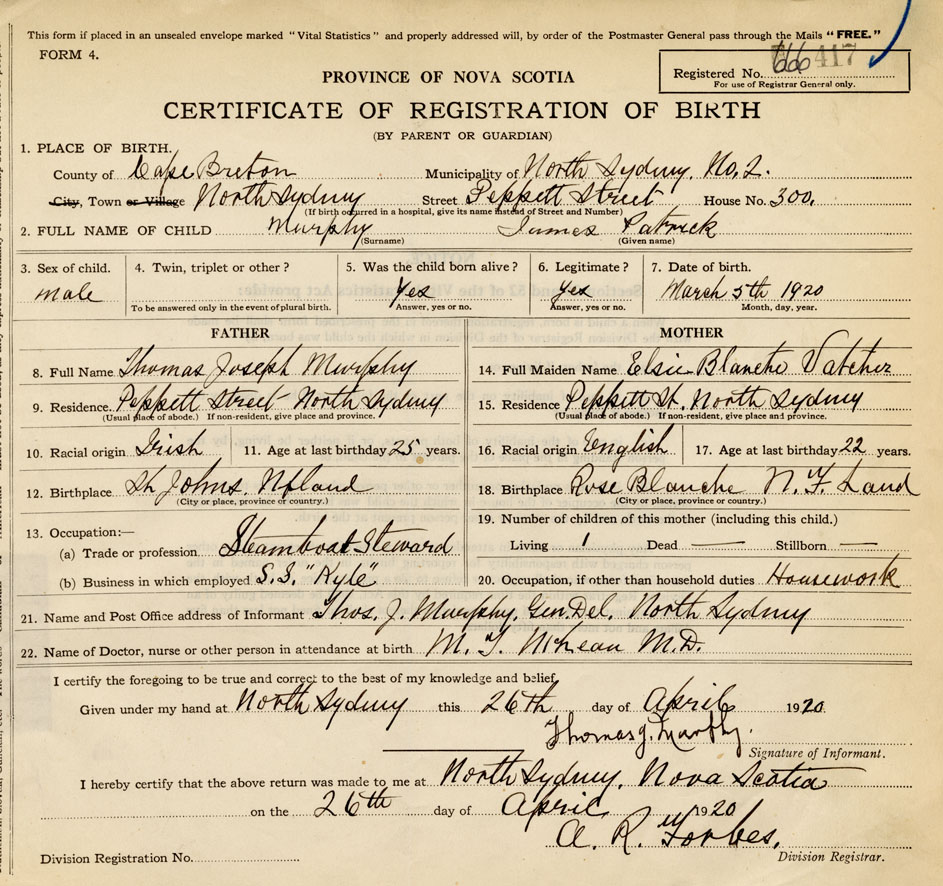 This form if placed in an unsealed envelope marked "Vital Statistics" and properly addressed will, by order of the Postmaster General pass through the Mails "FREE."
FORM 4.
Registered No. 417
For use of Registrar General only.
PROVINCE OF NOVA SCOTIA
CERTIFICATE OF REGISTRATION OF BIRTH
(BY PARENT OR GUARDIAN)
1. PLACE OF BIRTH.
County of Cape Breton Municipality of North Sydney, No. 2.
City, Town or Village North Sydney Street Peppett Street House No. 300.
(If birth occurred in a hospital, give its name instead of Street and Number)
2. FULL NAME OF CHILD Murphy James Patrick
(Surname) (Given name)
3. Sex of child. 4. Twin, triplet or other? 5. Was the child born alive? 6. Legitimate? 7. Date of birth.
male Yes Yes March 5th 1920
To be answered only in the event of plural birth. Answer, yes or no. Answer, yes or no. Month, day, year.
FATHER
8. Full Name Thomas Joseph Murphy
9. Residence. Peppett Street North Sydney
(Usual place of abode.) If non-resident, give place and province.
10. Racial origin Irish 11. Age at last birthday 25 years.
12. Birthplace St Johns. Nfland
(City or place, province or country.)
13. Occupation:—
(a) Trade or profession Steamboat Steward
(b) Business in which employed S.S. "Kyle"
MOTHER
14. Full Maiden Name Elsie Blanche Vatcher
15. Residence Peppett St. North Sydney
(Usual place of abode.) If non-resident, give place and province.
16. Racial origin English 17. Age at last birthday 22 years.
18. Birthplace Rose Blanche N.F. Land
(City or place, province or country.)
19. Number of children of this mother (including this child.)
Living 1 Dead — Stillborn —
20. Occupation, if other than household duties Housework
21. Name and Post Office address of Informant Thos. J. Murphy, Gen. Del. North Sydney
22. Name of Doctor, nurse or other person in attendance at birth M. T. McLean M.D.
I certify the foregoing to be true and correct to the best of my knowledge and belief.
Given under my hand at North Sydney this 26th day of April 1920.
Thomas J. Murphy.
Signature of Informant.
I hereby certify that the above return was made to me at North Sydney, Nova Scotia
on the 26th day of April 1920
A. R. Forbes.
Division Registration No. Division Registrar.